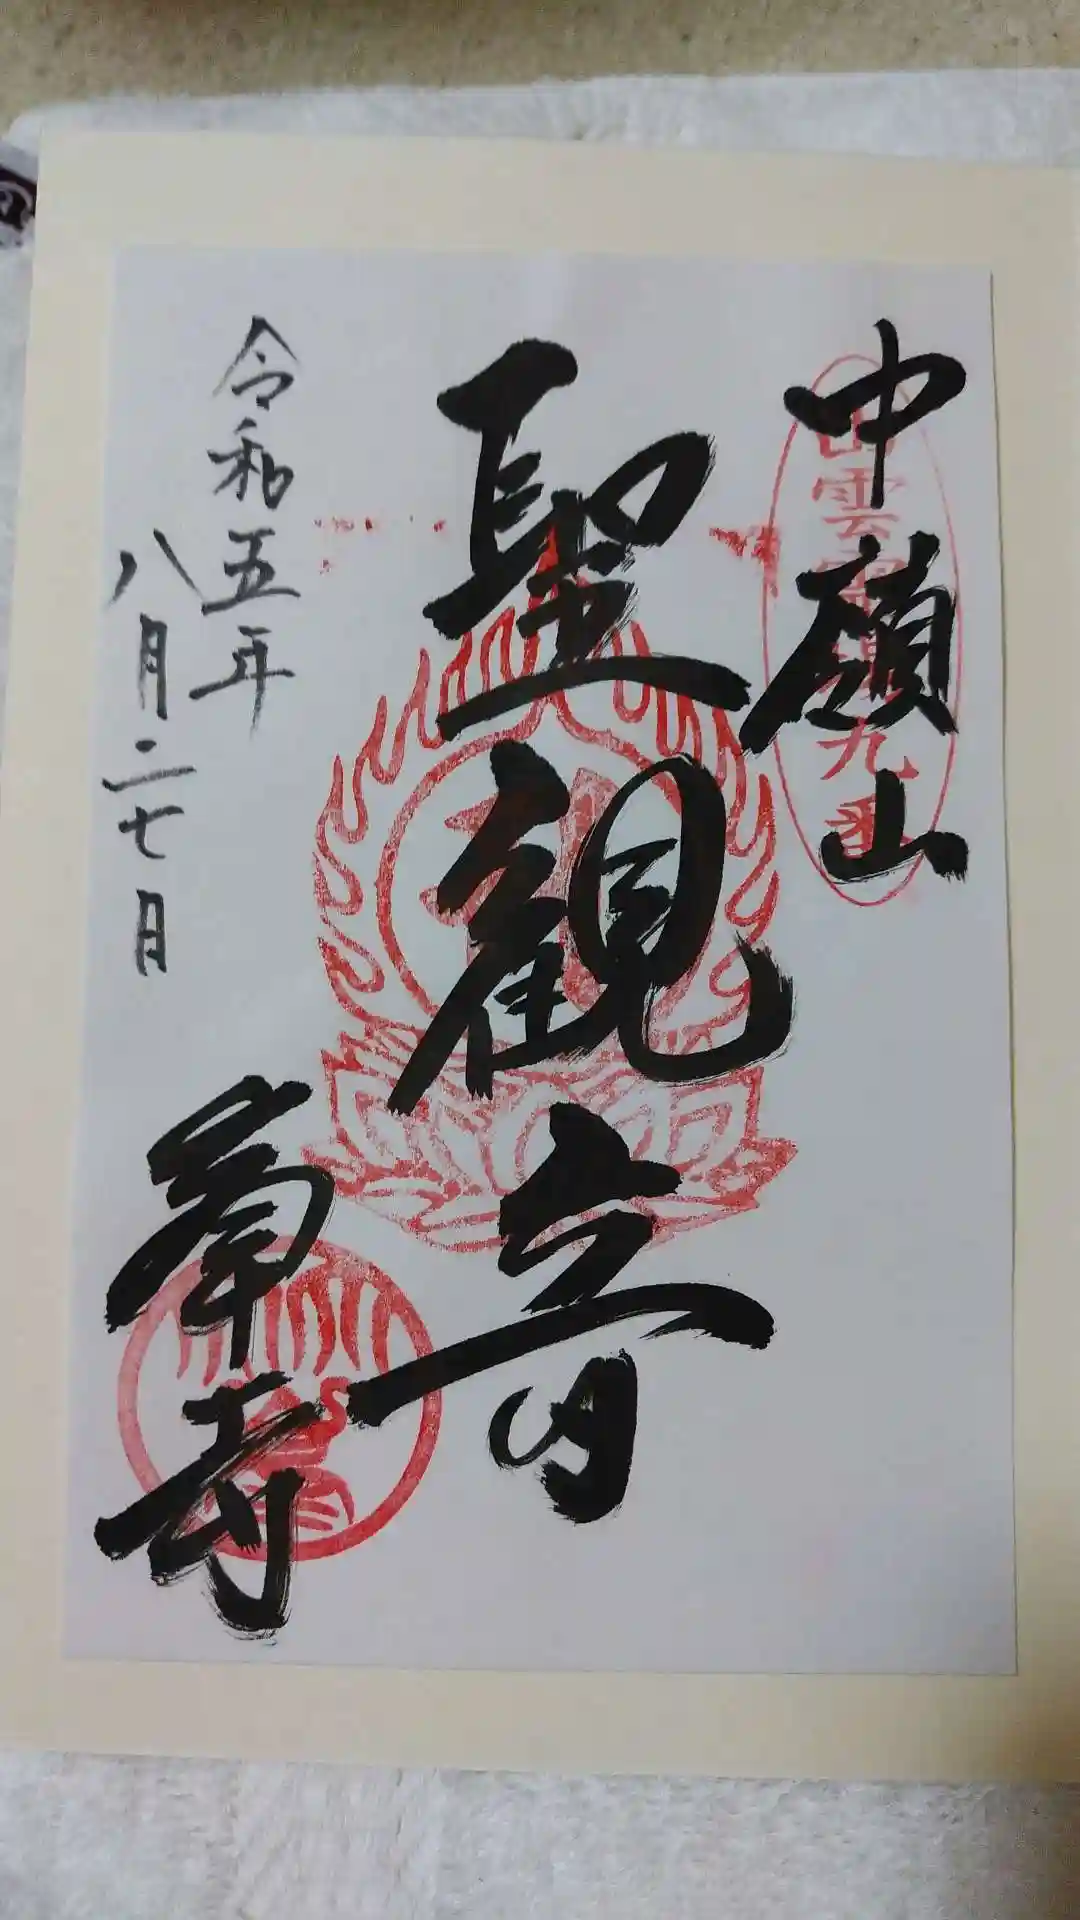 中嶺山
出雲霊場九番
聖観音
令和五年
八月二七日
峯寺